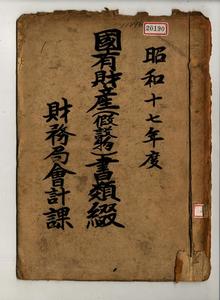 20190
昭和十七年度
國有財産
書類綴
財務局會計課